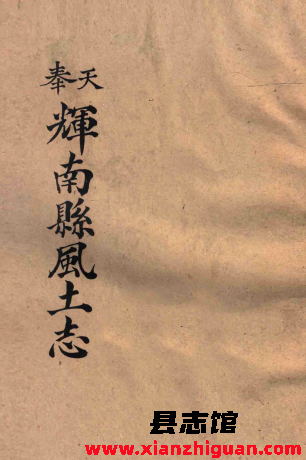 奉天
輝南縣風土志
县志馆
www.xianzhiguan.com